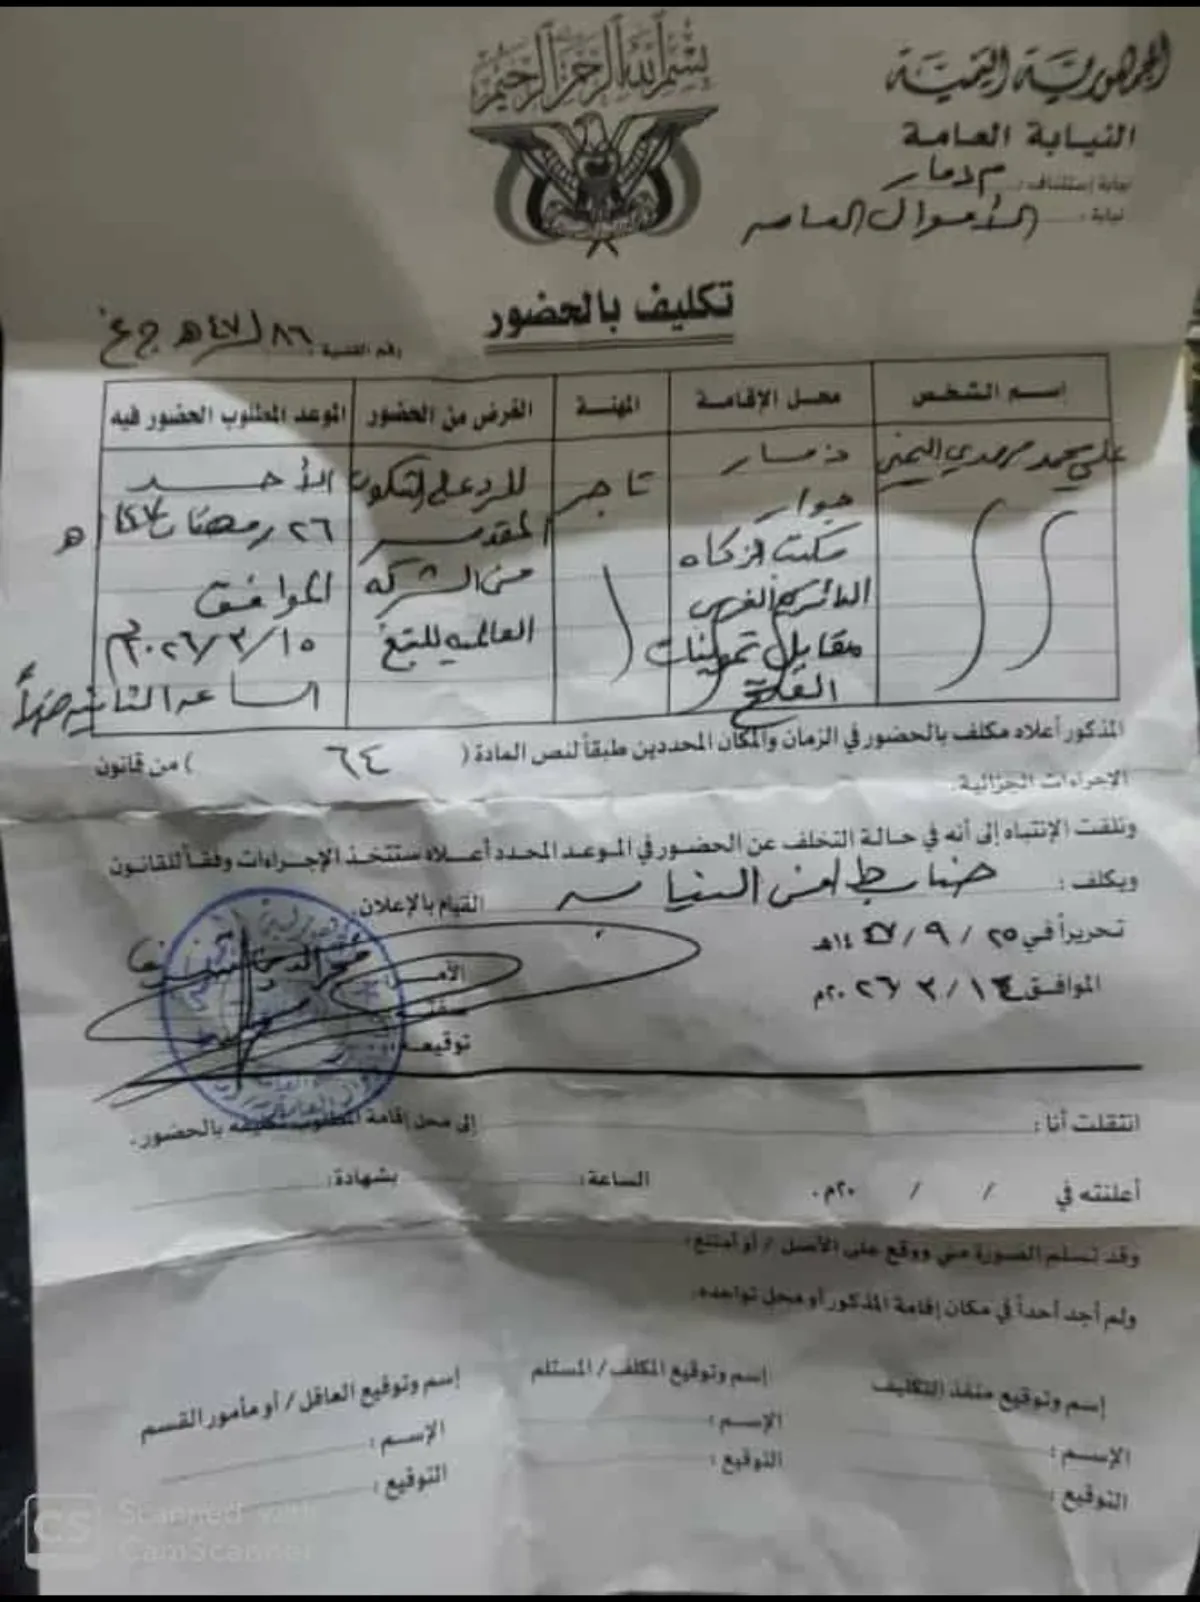 بسم الله الرحمن الرحيم
الجمهورية اليمنية
النيابة العامة
نيابة إستئناف: م ذمار
نيابة: الأموال العامه
تكليف بالحضور
رقم القضية: ٨٦ / ٤٧هـ ج غ
إسم الشخص محل الإقامة المهنة الغرض من الحضور الموعد المطلوب الحضور فيه
علي محمد مهدي اليمني ذمار تاجر للرد على الشكوى الأحد
جوار المقدمه ٢٦ رمضان ٤٧ هـ
مكتب الزكاه من الشركه الموافق
الدائري الغربي العالميه للتبغ ١٥/٣/٢٠٢٦م
مقابل تموينات الساعه الثانيه ظهراً
المذكور أعلاه مكلف بالحضور في الزمان والمكان المحددين طبقاً لنص المادة ( ٦٤ ) من قانون
الإجراءات الجزائية.
ونلفت الإنتباه إلى أنه في حالة التخلف عن الحضور في الموعد المحدد أعلاه ستتخذ الإجراءات وفقاً للقانون
ويكلف: ضابط امن النيابه القيام بالإعلان.
تحريراً في ٢٥ / ٩ / ١٤٤٧هـ
الموافق ١٤ / ٣ / ٢٠٢٦م
الأمر
صفته
توقيعه
انتقلت أنا: إلى محل إقامة المطلوب تكليفه بالحضور.
أعلنته في / / ٢٠م. الساعة: بشهادة:
وقد تسلم الصورة مني ووقع على الأصل / أو أمتنع:
ولم أجد أحداً في مكان إقامة المذكور أو محل تواجده:
إسم وتوقيع منفذ التكليف إسم وتوقيع المكلف / المستلم إسم وتوقيع العاقل / أو مأمور القسم
الإسم: الإسم: الإسم:
التوقيع: التوقيع: التوقيع:
CS Scanned with
CamScanner